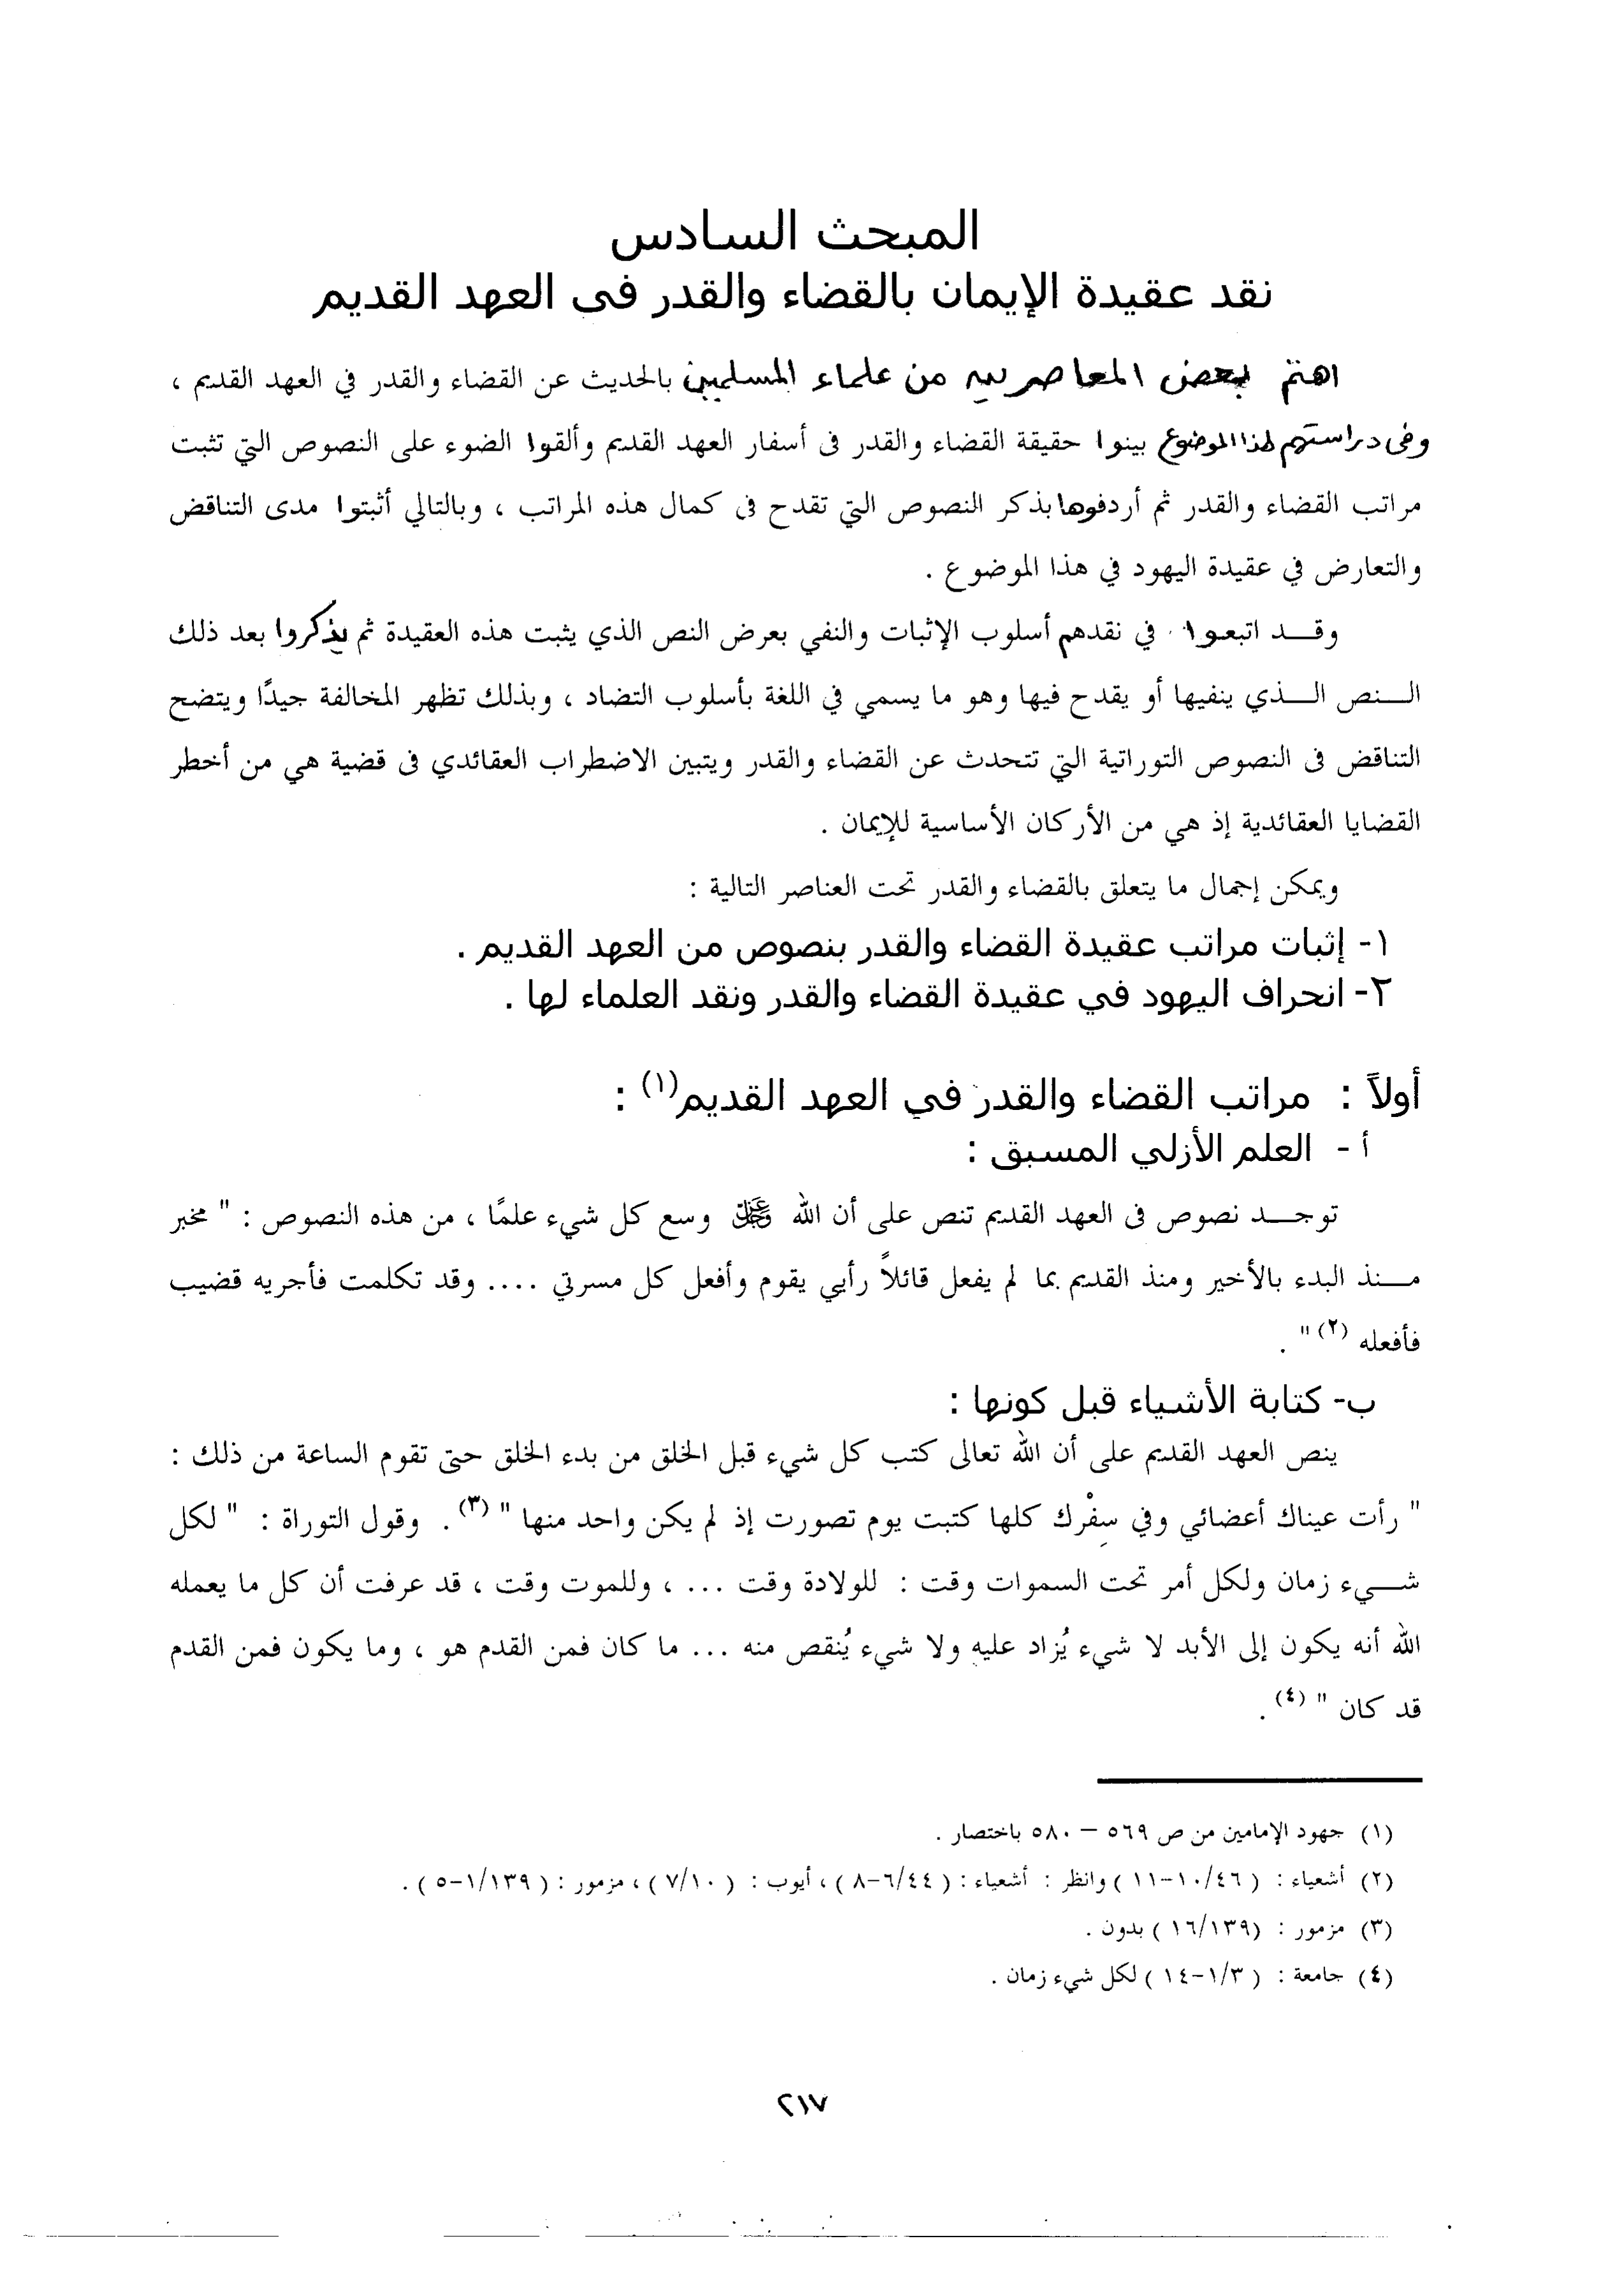 المبحث السادس
نقد عقيدة الإيمان بالقضاء والقدر فى العهد القديم
اهتم بعض المعاصرين من علماء المسلمين بالحديث عن القضاء والقدر في العهد القديم ،
وفى دراستهم لهذا الموضوع بينوا حقيقة القضاء والقدر فى أسفار العهد القديم وألقوا الضوء على النصوص التي تثبت
مراتب القضاء والقدر ثم أردفوها بذكر النصوص التي تقدح فى كمال هذه المراتب ، وبالتالي أثبتوا مدى التناقض
والتعارض في عقيدة اليهود في هذا الموضوع .
وقـــد اتبعوا في نقدهم أسلوب الإثبات والنفي بعرض النص الذي يثبت هذه العقيدة ثم يذكروا بعد ذلك
الـــنص الـــذي ينفيها أو يقدح فيها وهو ما يسمي في اللغة بأسلوب التضاد ، وبذلك تظهر المخالفة جيدًا ويتضح
التناقض فى النصوص التوراتية التي تتحدث عن القضاء والقدر ويتبين الاضطراب العقائدي فى قضية هي من أخطر
القضايا العقائدية إذ هي من الأركان الأساسية للإيمان .
ويمكن إجمال ما يتعلق بالقضاء والقدر تحت العناصر التالية :
١- إثبات مراتب عقيدة القضاء والقدر بنصوص من العهد القديم .
٢- انحراف اليهود في عقيدة القضاء والقدر ونقد العلماء لها .
أولاً : مراتب القضاء والقدر في العهد القديم(١) :
أ - العلم الأزلي المسبق :
توجـــد نصوص فى العهد القديم تنص على أن الله عز وجل وسع كل شيء علمًا ، من هذه النصوص : " مخبر
مـــنذ البدء بالأخير ومنذ القديم بما لم يفعل قائلاً رأيي يقوم وأفعل كل مسرتي .... وقد تكلمت فأجريه قضيب
فأفعله (٢) " .
ب- كتابة الأشياء قبل كونها :
ينص العهد القديم على أن الله تعالى كتب كل شيء قبل الخلق من بدء الخلق حتى تقوم الساعة من ذلك :
" رأت عيناك أعضائي وفي سِفْرك كلها كتبت يوم تصورت إذ لم يكن واحد منها " (٣) . وقول التوراة : " لكل
شـــيء زمان ولكل أمر تحت السموات وقت : للولادة وقت ... ، وللموت وقت ، قد عرفت أن كل ما يعمله
الله أنه يكون إلى الأبد لا شيء يُزاد عليه ولا شيء يُنقص منه ... ما كان فمن القدم هو ، وما يكون فمن القدم
قد كان " (٤) .
(١) جهود الإمامين من ص ٥٦٩ – ٥٨٠ باختصار .
(٢) أشعياء : ( ١٠/٤٦-١١ ) وانظر : أشعياء : ( ٦/٤٤-٨ ) ، أيوب : ( ٧/١٠ ) ، مزمور : ( ١/١٣٩-٥ ) .
(٣) مزمور : (١٦/١٣٩ ) بدون .
(٤) جامعة : ( ١/٣-١٤ ) لكل شيء زمان .
٢١٧